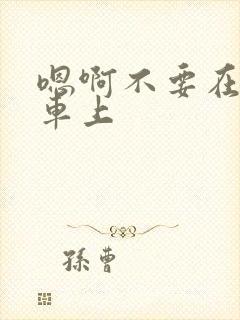 嗯啊不要在
车上
孫曹